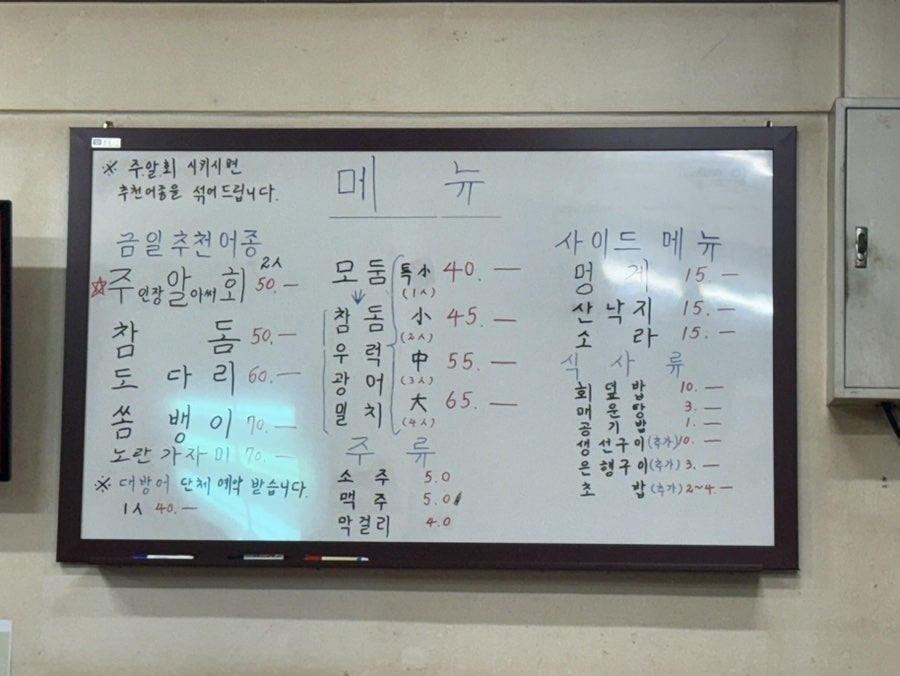 ※ 주.알.회 시키시면
추천어종을 섞어드립니다.
메 뉴
금일추천어종
☆주인장알아써회 2人 50.—
참 돔 50.—
도 다 리 60.—
쏨 뱅 이 70.—
노란 가자미 70.—
※ 대방어 단체 예약 받습니다.
1人 40.—
모 둠 특小 (1人) 40.—
참 돔 小 (2人) 45.—
우 럭 中 (3人) 55.—
광 어
밀 치 大 (4人) 65.—
주 류
소 주 5.0
맥 주 5.0
막걸리 4.0
사이드 메뉴
멍 게 15.—
산 낙 지 15.—
소 라 15.—
식 사 류
회 덮 밥 10.—
매 운 탕 3.—
공 기 밥 1.—
생 선구이 (추가) 10.—
은 행구이 (추가) 3.—
초 밥 (추가) 2~4.—